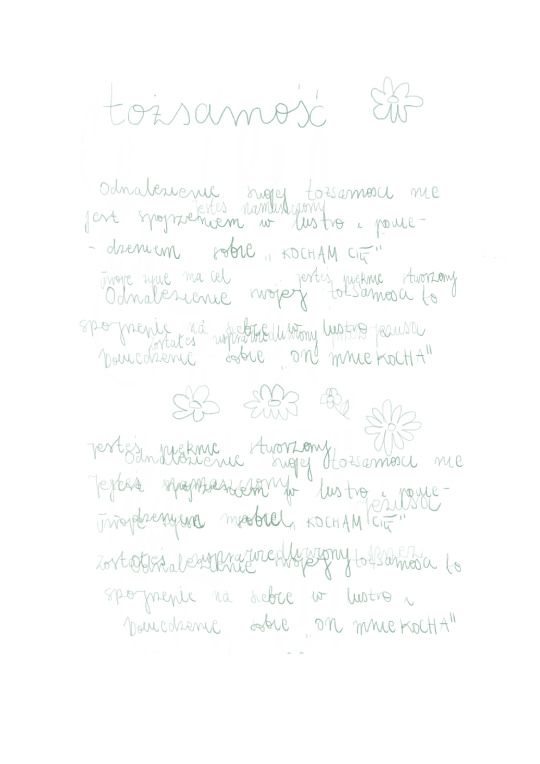 tożsamość
Odnalezienie swojej tożsamości nie
jesteś namaszczony
jest spojrzeniem w lustro i powie-
- dzeniem sobie „KOCHAM CIĘ"
Twoje życie ma cel jesteś pięknie stworzony
Odnalezienie swojej tożsamości to
spojrzenie na siebie w lustro
zostałeś usprawiedliwiony przez jezusa
powiedzenie sobie „ON mnie KOCHA"
jesteś pięknie stworzony
Odnalezienie swojej tożsamości nie
Jesteś namaszczony
spojrzeniem w lustro i powie-
jezusa
Twoje
dzeniem sobie „KOCHAM CIĘ"
zostałeś usprawiedliwiony przez
Odnalezienie swojej tożsamości to
spojrzenie na siebie w lustro i
powiedzenie sobie „ON mnie KOCHA"